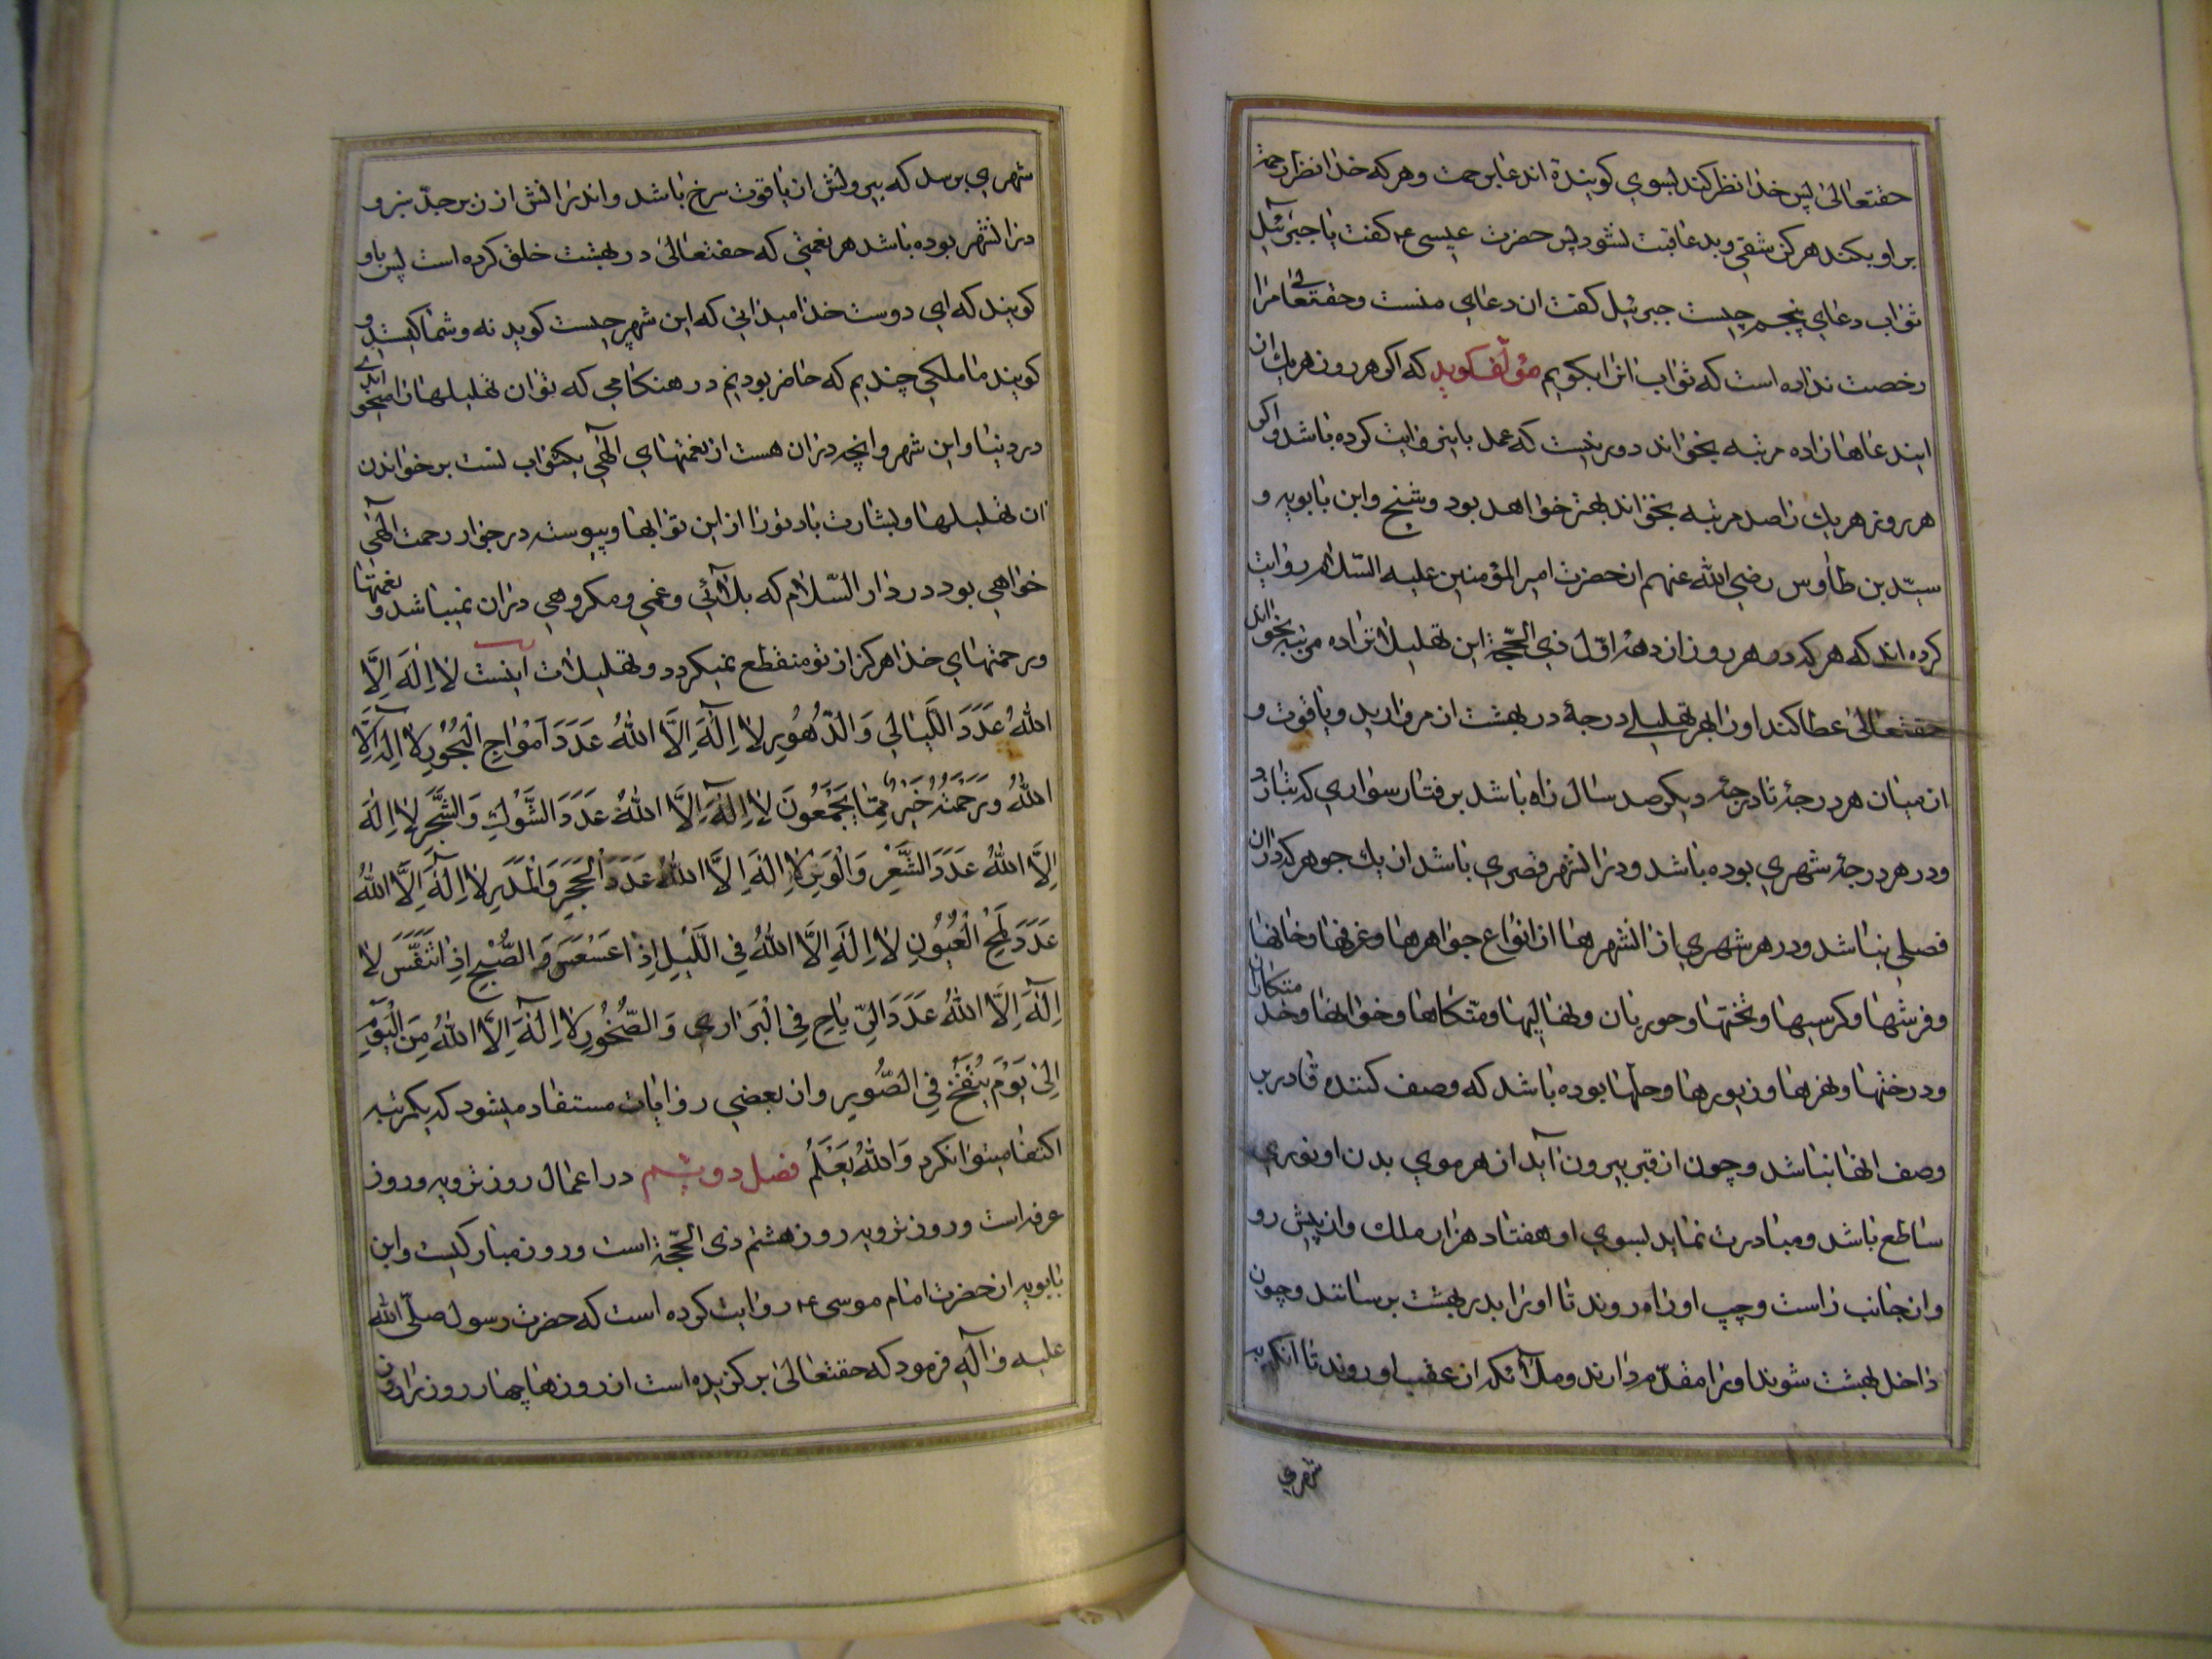 حقتعالی پس خدا نظر کند بسوی کوینده اندعا برحمت وهرکه خدا نظر رحمت
براو بکند هرکز شقی وبدعاقبت نشود پس حضرت عیسی ع کفت یا جبرئیل
ثواب دعای پنجم چیست جبرئیل کفت ان دعای منست وحقتعالی مرا
رخصت نداده است که ثواب انرا بکویم مؤلف کوید که اکر هر روز هریک ان
ایندعاها را ده مرتبه بخواند دور نیست که عمل باین روایت کرده باشد واکر
هر روز هریک را صد مرتبه بخواند بهتر خواهد بود وشیخ وابن بابویه و
سید بن طاوس رضی الله عنهم از حضرت امیر المؤمنین علیه السلام روایت
کرده اند که هرکه در هر روز از دهه اول ذی الحجة این تهلیلات را ده مرتبه بخواند
حقتعالی عطا کند اورا بهر تهلیلی درجهٔ در بهشت از مروارید ویاقوت و
از میان هر درجهٔ تا درجهٔ دیکر صد سال راه باشد برفتار سواری که بتازد
ودر هر درجهٔ شهری بوده باشد ودر انشهر قصری باشد از یک جوهر که در ان
فصلی نباشد ودر هر شهری از انشهرها از انواع جواهرها وغرفها وخانها
وفرشها وکرسیها وتختها وحوریان ونهالیها ومتکاها وخوانها وخدمتکاران
ودرختها ونهرها وزیورها وحلها بوده باشد که وصف کننده قادر بر
وصف انها نباشد وچون از قبر بیرون آید از هر موی بدن او نوری
ساطع باشد ومبادرت نماید بسوی او هفتاد هزار ملک واز پیش رو
واز جانب راست وچپ او راه روند تا اورا بدر بهشت برسانند وچون
داخل بهشت شوند اورا مقدم دارند وملآئکه از عقب او روند تا انکه به
شهری
شهری برسد که بیرونش از یاقوت سرخ باشد واندرانش از زبرجد سبز و
در انشهر بوده باشد هر نعمتی که حقتعالی در بهشت خلق کرده است پس باو
کویند که ای دوست خدا میدانی که این شهر چیست کوید نه وشما کیستید و
کویند ما ملکی چندیم که حاضر بودیم در هنکامی که تو ان تهلیلها را میخواندی
در دنیا واین شهر وانچه در ان هست از نعمتهای الهی یکثواب تست بر خواندن
ان تهلیلها وبشارت باد تورا از این ثوابها وپیوسته در جوار رحمت الهی
خواهی بود در دار السلام که بلائی وغمی ومکروهی در ان نمیباشد و نعمتها
ورحمتهای خدا هرکز از تو منقطع نمیکردد وتهلیلات اینست لا اِلٰهَ اِلَّا
اللهُ عَدَدَ اللَّیالِی وَالدُّهُورِ لا اِلٰهَ اِلَّا اللهُ عَدَدَ اَمْواجِ الْبُحُورِ لا اِلٰهَ اِلَّا
اللهُ ورَحْمَتُهُ خَیْرٌ مِمّا یَجْمَعُونَ لا اِلٰهَ اِلَّا اللهُ عَدَدَ الشَّوْكِ وَالشَّجَرِ لا اِلٰهَ
اِلَّا اللهُ عَدَدَ الشَّعْرِ وَالْوَبَرِ لا اِلٰهَ اِلَّا اللهُ عَدَدَ الْحَجَرِ وَالْمَدَرِ لا اِلٰهَ اِلَّا اللهُ
عَدَدَ لَمْحِ الْعُیُونِ لا اِلٰهَ اِلَّا اللهُ فِی اللَّیْلِ اِذا عَسْعَسَ وَالصُّبْحِ اِذا تَنَفَّسَ لا
اِلٰهَ اِلَّا اللهُ عَدَدَ الرِّیاحِ فِی الْبَرارِی وَالصُّخُورِ لا اِلٰهَ اِلَّا اللهُ مِنَ الْیَوْمِ
اِلیٰ یَوْمَ یُنْفَخُ فِی الصُّورِ واز بعضی روایات مستفاد میشود که یکمرتبه
اکتفا میتوانکرد وَاللهُ یَعْلَمُ فصل دویم در اعمال روز ترویه وروز
عرفه است وروز ترویه روز هشتم ذی الحجة است وروز مبارکیست وابن
بابویه از حضرت امام موسی ع روایت کرده است که حضرت رسول صلی الله
علیه وآله فرمود که حقتعالی برکزیده است از روزها چهار روز را